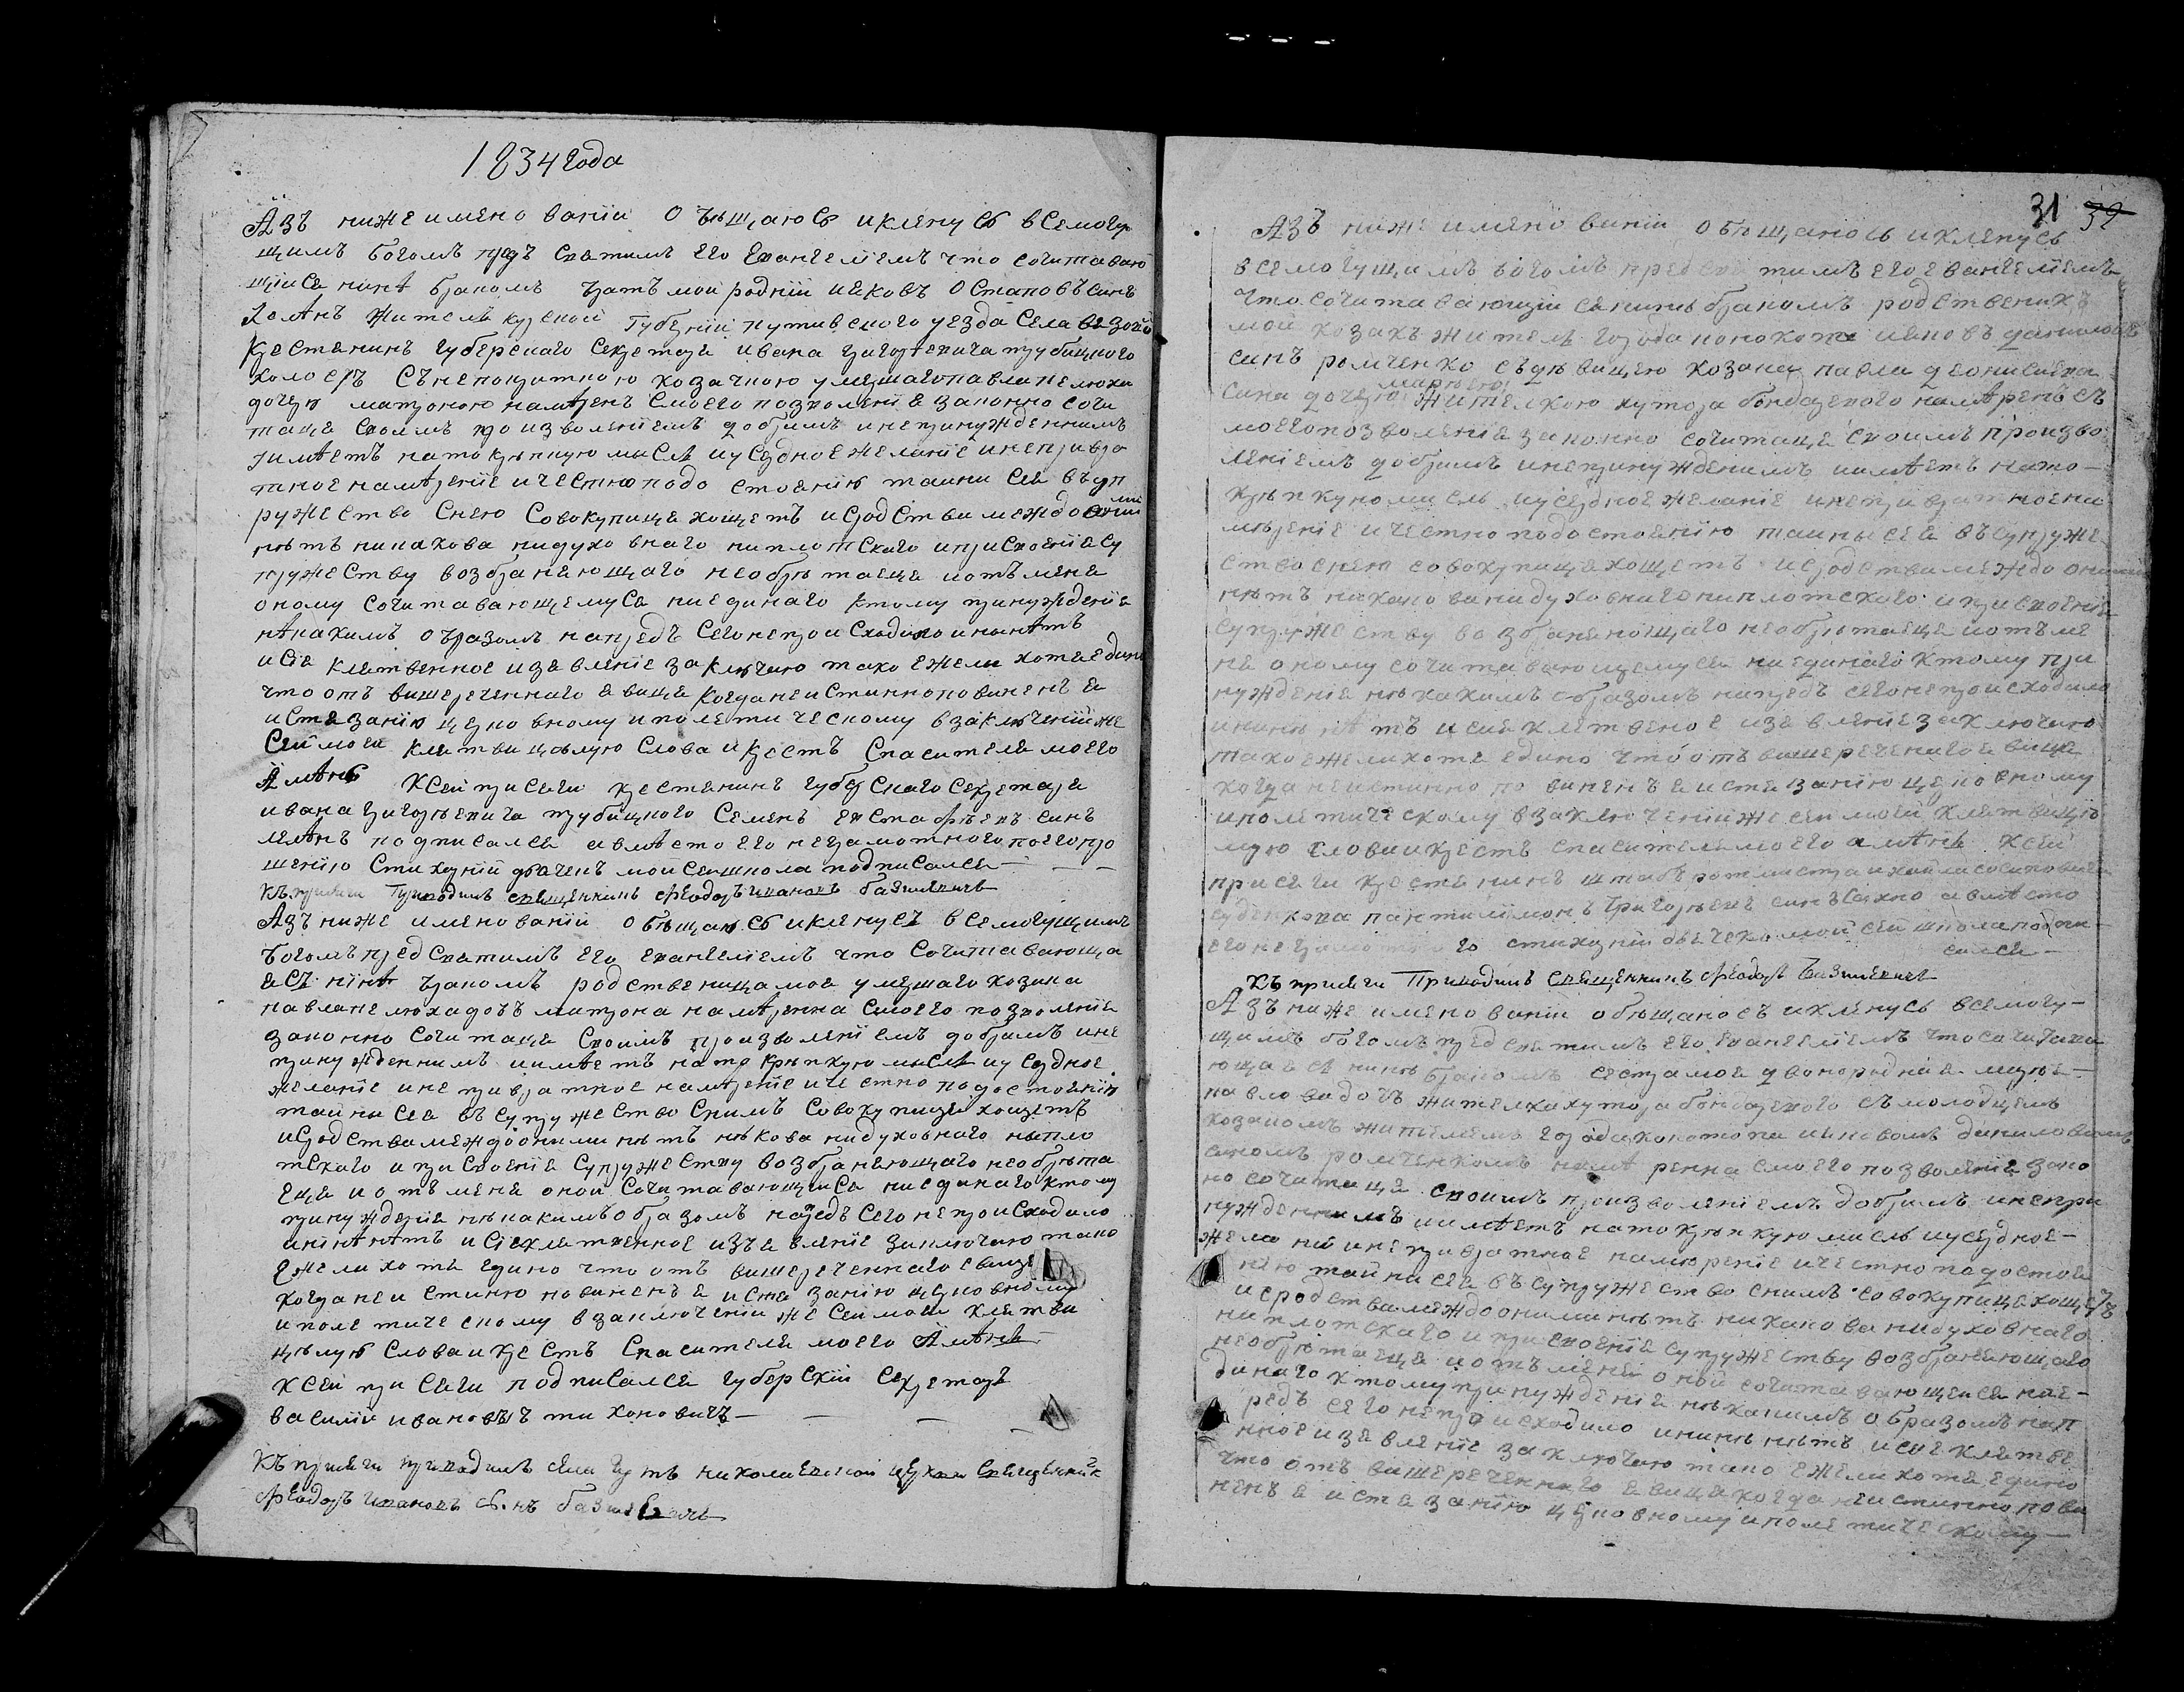 1834 года
Азъ нижеименованїи Обѣщаюсь и кленусь всемогу
щимъ богомъ предъ Святимъ Его Евангелїемъ что сочитаваю
щїися нинѣ бракомъ братъ мой роднїй иаковъ Остаповъ синъ
житель курской Губернїи путивского уезда Села
Крестянинъ губерского Секретаря ивана григорьевича трубицкого
холостъ Съ козачкою умершаго павла пелюха
дочерю матроною намѣренъ Смоего позволенїя законно сочи
таця Своимъ произволенїемъ добримъ и непринужденнимъ
иимѣетъ на то крѣпкую мисль иусердное желанїе и неприввра
тное намѣренїе и честно по достоянїю таини Сея въ суп
ружество Снею Совокупиця хощетъ и Сродстви межъдо оними
нѣтъ никакова нидуховнаго ниплотскаго и присвоенїя Су
пружеству возбраняющаго необрѣтаеця иотъ мене
оному сочитавающемуся ниединаго ктому принужденїя
нѣкакимъ обѣразомъ напредъ Сего непроисходило и нынѣтъ
и Сїе клятвенное изявленїе заключаю тако ежели хотя едино
что отъ вишереченнаго явиця когда неистинно повиненъ я
истязанїю церковному и полетическому взаключенїи же
Сей моеи клятви цѣлую Слова и Крестъ Спасителя моего
Аминь Ксеи присяги крестянинъ губерскаго Секретаря
ивана григорьевича трубицкого Семенъ Евстафьевъ синъ
подписался авмѣсто его неграмотного поегопро
шенїю Стихарнїй дяченъ мой Сей школа подписался
Къ присяги Приводилъ священникъ Феодоръ ивановъ базилевичъ
Азъ ниже именованїй обѣщаюсь и кленусъ всемогущимъ
Богомъ предСвятимъ Его евангелїемъ что Сочитавающа
яСя нинѣ браномъ родственица моя умершаго козака
павла пелюхадочъ матрона намѣренна Смоего позволенїя
законно Сочитаця Своимъ произволенїемъ добримъ ине
принужденнимъ иимѣетъ нато крѣпкую мисль иусердное
желанїе инепривратное намѣренїе ичестно по достоянїю
тайны Сея въ Супружество Снимъ Совокупиця хощетъ
иСродства междоонимы нѣтъ нѣкова нидуховнаго ныпло
тскаго и присвоенїя Супружеству возбраняющаго необрѣта
еця иотъ мене оной Сочитавающейся ниединаго ктому
принужденїя нѣкакимъобразомъ напредъ Сего непроисходило
ининѣнѣтъ и Сїеклятвенное изъявленїе заключаю тако
ежели хотя едино что отъ вишереченнаго явиця
когда неистинно повиненъ я истязанїю церковному
и полетическому взаключенїи же Сеи моеи клятви
цѣлую Слова и крестъ Спасителя моего Аминь
ксеи присяги подписался губерскїи Секретарь
василїи ивановъ тихоновичъ
Къ присяги приводилъ села николаевской церкви Священникъ
Феодоръ ивановъ Синъ базилевичъ
31 32
Азъ ниже именованїи обѣщаюсь икленусь
всемогущимъ богомъ предсвятимъ его евангелїемъ
что сочитавающїися нинѣ бракомъ родственикъ
мой козакъ житель города конотопа иаковъ даниловъ
синъ ромченко съ дѣвицею козака павла деонисиева
марѳею
сина дочерю жителкою хутора бондарского намѣренъ съ
моегопозволенїя законно сочитаця своимъ произво
ленїемъ добримъ инепринужденимъ иимѣетъ нато
крѣпкую мисль иусердное желанїе инепривратноена
мѣренїе ичестно подостоянїю таины сея въ супруже
ство снею совокупиця хощетъ исродствамеждо оними
нѣтъ никакова нидуховнаго ниплотскаго и присвоенїя
супружеству возбраняющаго необрѣтаеця иотъ ме
не оному сочитавающемуся ниединаго ктому при
нужденїя нѣкакимъ образомъ напредъ сего непроисходило
ининѣ нѣтъ исие клятвеное изявленїе заключаю
тако ежели хотя едино что отъ вишереченаго явиця
когда неистинно повиненъ я истязанїю церковному
иполетическому взаключенїи же сеи моеи клятви цѣ
лую слова икрестъ спасителя моего аминь ксеи
присяги крестянинъ штабсротмистра
пантилимонъ григорьевъ синъ авмѣсто
его неграмотного стихарнїи дяченъ мой сеи школа подпи
сался
Къ присяги Приводилъ Священникъ Феодоръ Базилевичъ
Азъ ниже именованїи обѣщаюсъ икленусь всемогу
щимъ богомъ предсвятимъ его Евангелїемъ что сочитава
ющаяся нинѣ бракомъ сестра моя двоюродная
павлова дочъ жителка хутора бондарского съ молодцемъ
козакомъ жителемъ города конотопа иаковомъ даниловимъ
синомъ ромченкомъ намѣренна смоего позволенїя зако
но сочитаця своимъ произволенїемъ добримъ инепри
нужденнимъ иимѣетъ нато крѣпкую мисль иусердное
жела нїи инепривратное намѣренїе ичестно по достоя
нїю тайни сея въ супружество снимъ совокупиця хощетъ
исродствамеждоонимы нѣтъ никакова нидуховнаго
ниплотскаго и присвоенїя супружеству возбраняющаго
необрѣтаеця иотъ мене оной сочитавающейся ние
динаго ктому принужденїя нѣкакимъ образомъ нап
редъ сего непроисходило ининѣ нѣтъ исие клятве
нное изявленїе заключаю тако ежели хотя едино
что отъ вишереченнаго явиця когда неистинно пови
ненъ я истязанїю церковному иполетическому